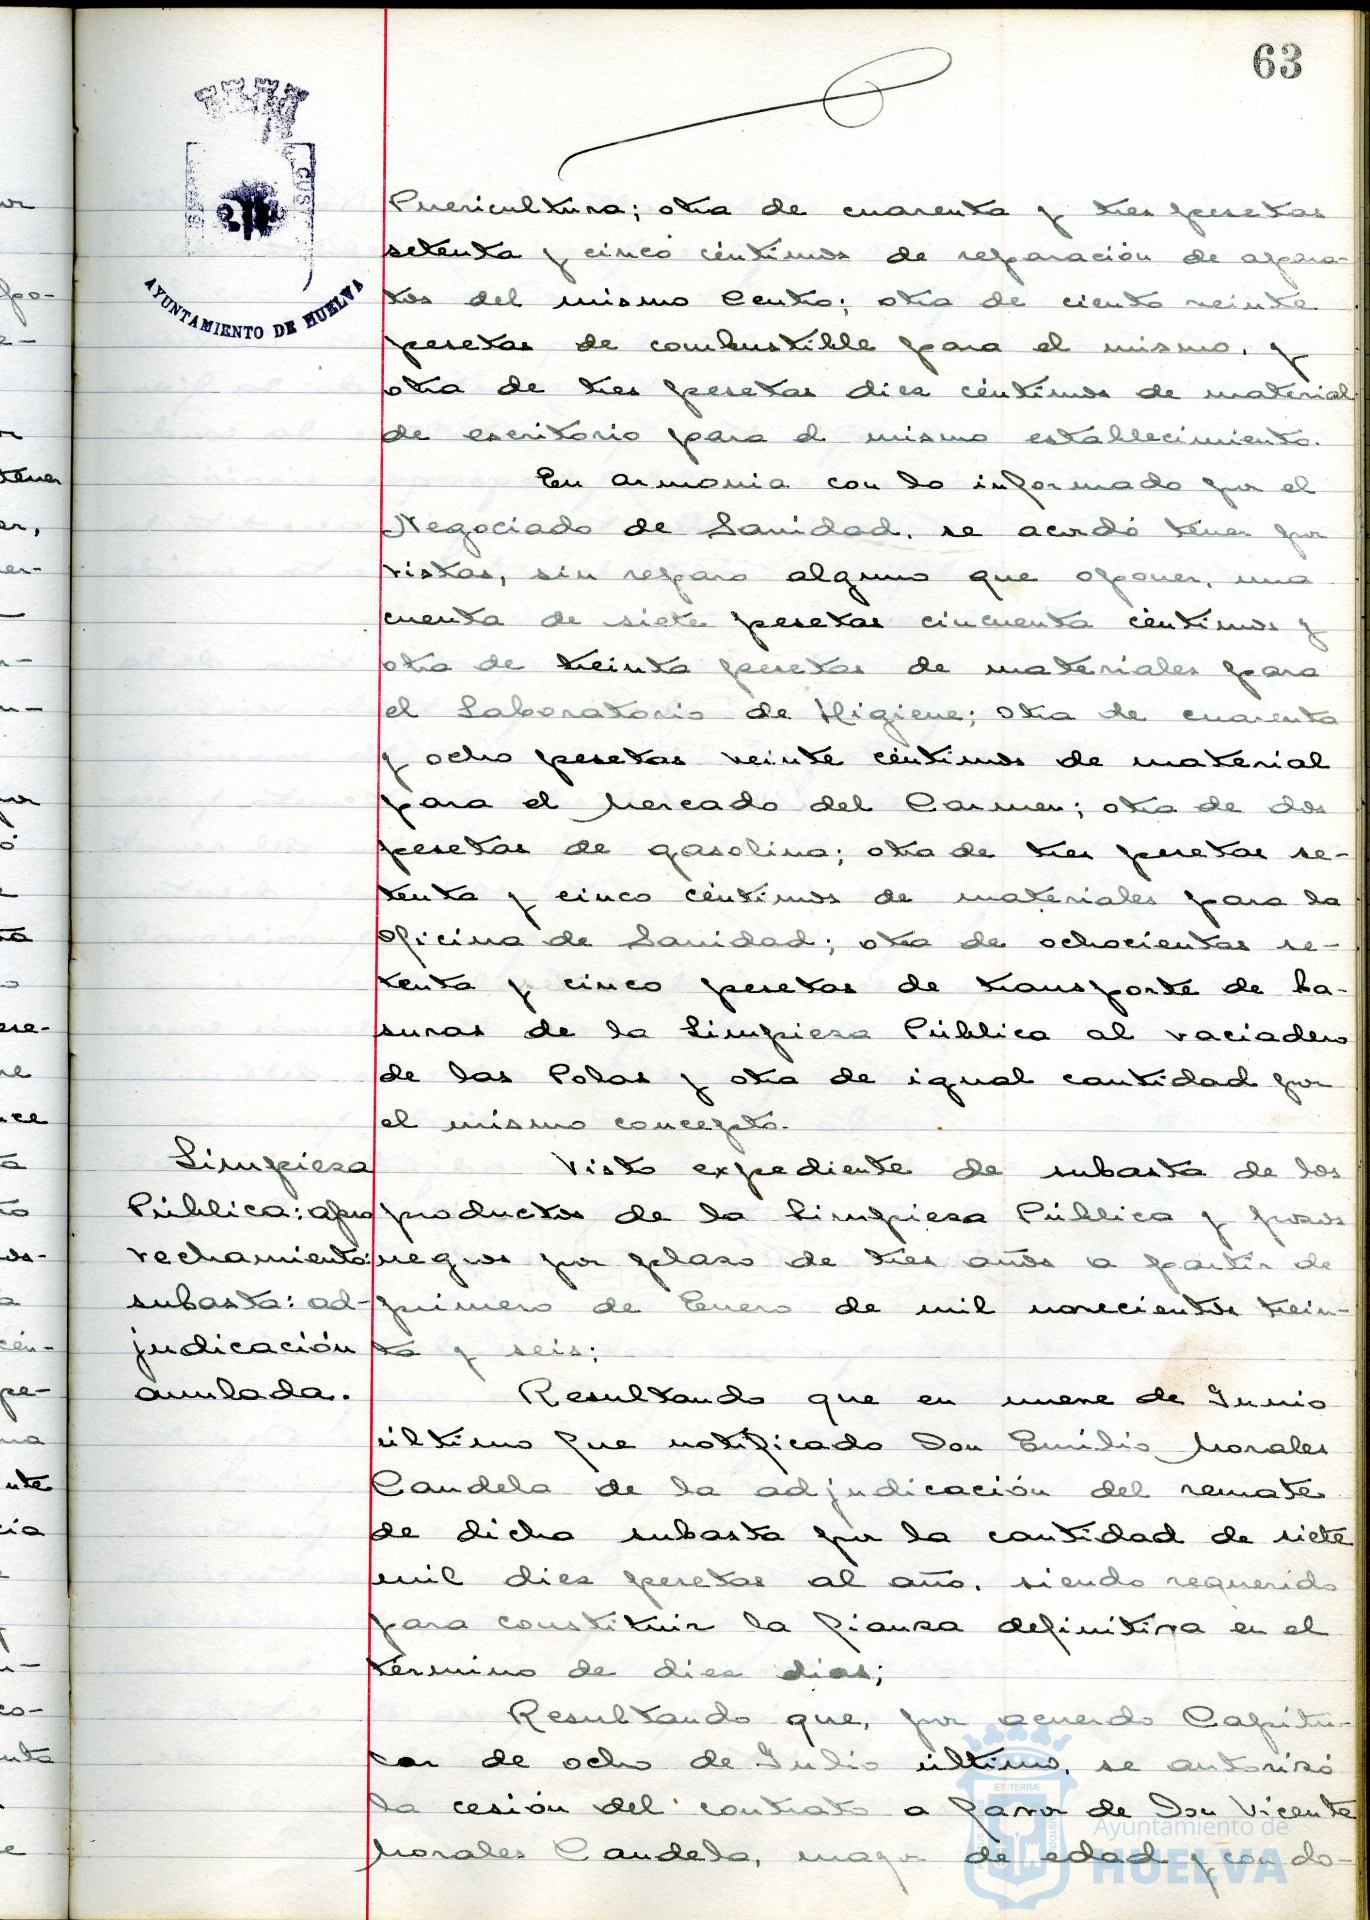 63
AYUNTAMIENTO DE HUELVA
Puericultura; otra de cuarenta y tres pesetas
setenta y cinco céntimos de reparación de apara-
tos del mismo Centro; otra de ciento veinte
pesetas de combustible para el mismo, y
otra de tres pesetas diez céntimos de material
de escritorio para el mismo establecimiento.
En armonia con lo informado por el
Negociado de Sanidad, se acordó tener por
vistas, sin reparo alguno que oponer, una
cuenta de siete pesetas cincuenta céntimos y
otra de treinta pesetas de materiales para
el Laboratorio de Higiene; otra de cuarenta
y ocho pesetas veinte céntimos de material
para el Mercado del Carmen; otra de dos
pesetas de gasolina; otra de tres pesetas se-
tenta y cinco céntimos de materiales para la
Oficina de Sanidad; otra de ochocientas se-
tenta y cinco pesetas de transporte de ba-
suras de la Limpieza Pública al vaciadero
de las Polas y otra de igual cantidad por
el mismo concepto.
Limpieza
Pública: apro
vechamiento:
subasta: ad-
judicación
anulada.
Visto expediente de subasta de los
productos de la Limpieza Pública y pozos
negros por plazo de tres años a partir de
primero de Enero de mil novecientos trein-
ta y seis;
Resultando que en nueve de Junio
último fue notificado Don Emilio Morales
Candela de la adjudicación del remate
de dicha subasta por la cantidad de siete
mil diez pesetas al año, siendo requerido
para constituir la fianza definitiva en el
término de diez dias;
Resultando que, por acuerdo Capitu-
lar de ocho de Julio último, se autorizó
la cesión del contrato a favor de Don Vicente
Morales Candela, mayor de edad y con do-
Ayuntamiento de
HUELVA